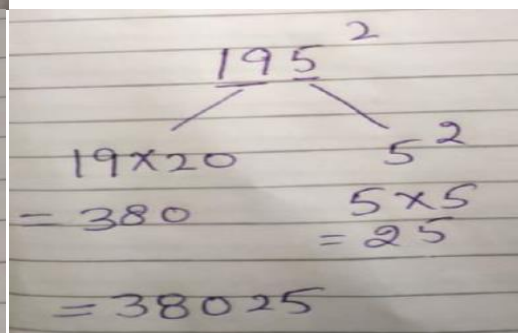 195²
19×20 5²
= 380 5×5
= 25
= 38025